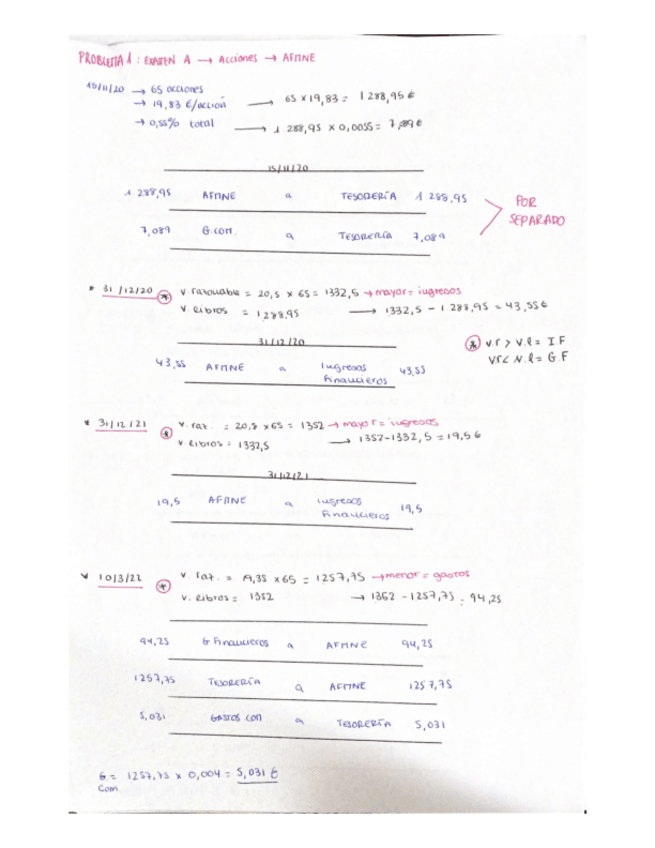 PROBLEMA 1 : EXAMEN A → Acciones → AFMNE
15/11/20 → 65 acciones
→ 19,83 €/acción → 65 x 19,83 = 1288,95 €
→ 0,55% total → 1.288,95 x 0,0055 = 7,089 €
15/11/20
1.288,95 AFMNE a TESORERÍA 1.288,95
POR SEPARADO
7,089 G.COM. a TESORERÍA 7,089
31/12/20 * V razonable = 20,5 x 65 = 1332,5 → mayor = ingresos
V libros = 1288,95 → 1332,5 - 1288,95 = 43,55€
31/12/20
* V.r > V.l = I.F
Vr < V.l = G.F
43,55 AFMNE a Ingresos financieros 43,55
* 31/12/21 * V. raz. = 20,8 x 65 = 1352 → mayor = ingresos
V. libros = 1332,5 → 1352-1332,5 = 19,5 €
31/12/21
19,5 AFMNE a Ingresos Financieros 19,5
10/3/22 * V. raz. = 19,35 x 65 = 1257,75 → menor = gastos
V. libros = 1352 → 1352 - 1257,75 = 94,25
94,25 G Financieros a AFMNE 94,25
1257,75 TESORERÍA a AFMNE 1257,75
5,031 GASTOS COM a TESORERÍA 5,031
G. Com = 1257,75 x 0,004 = 5,031 €